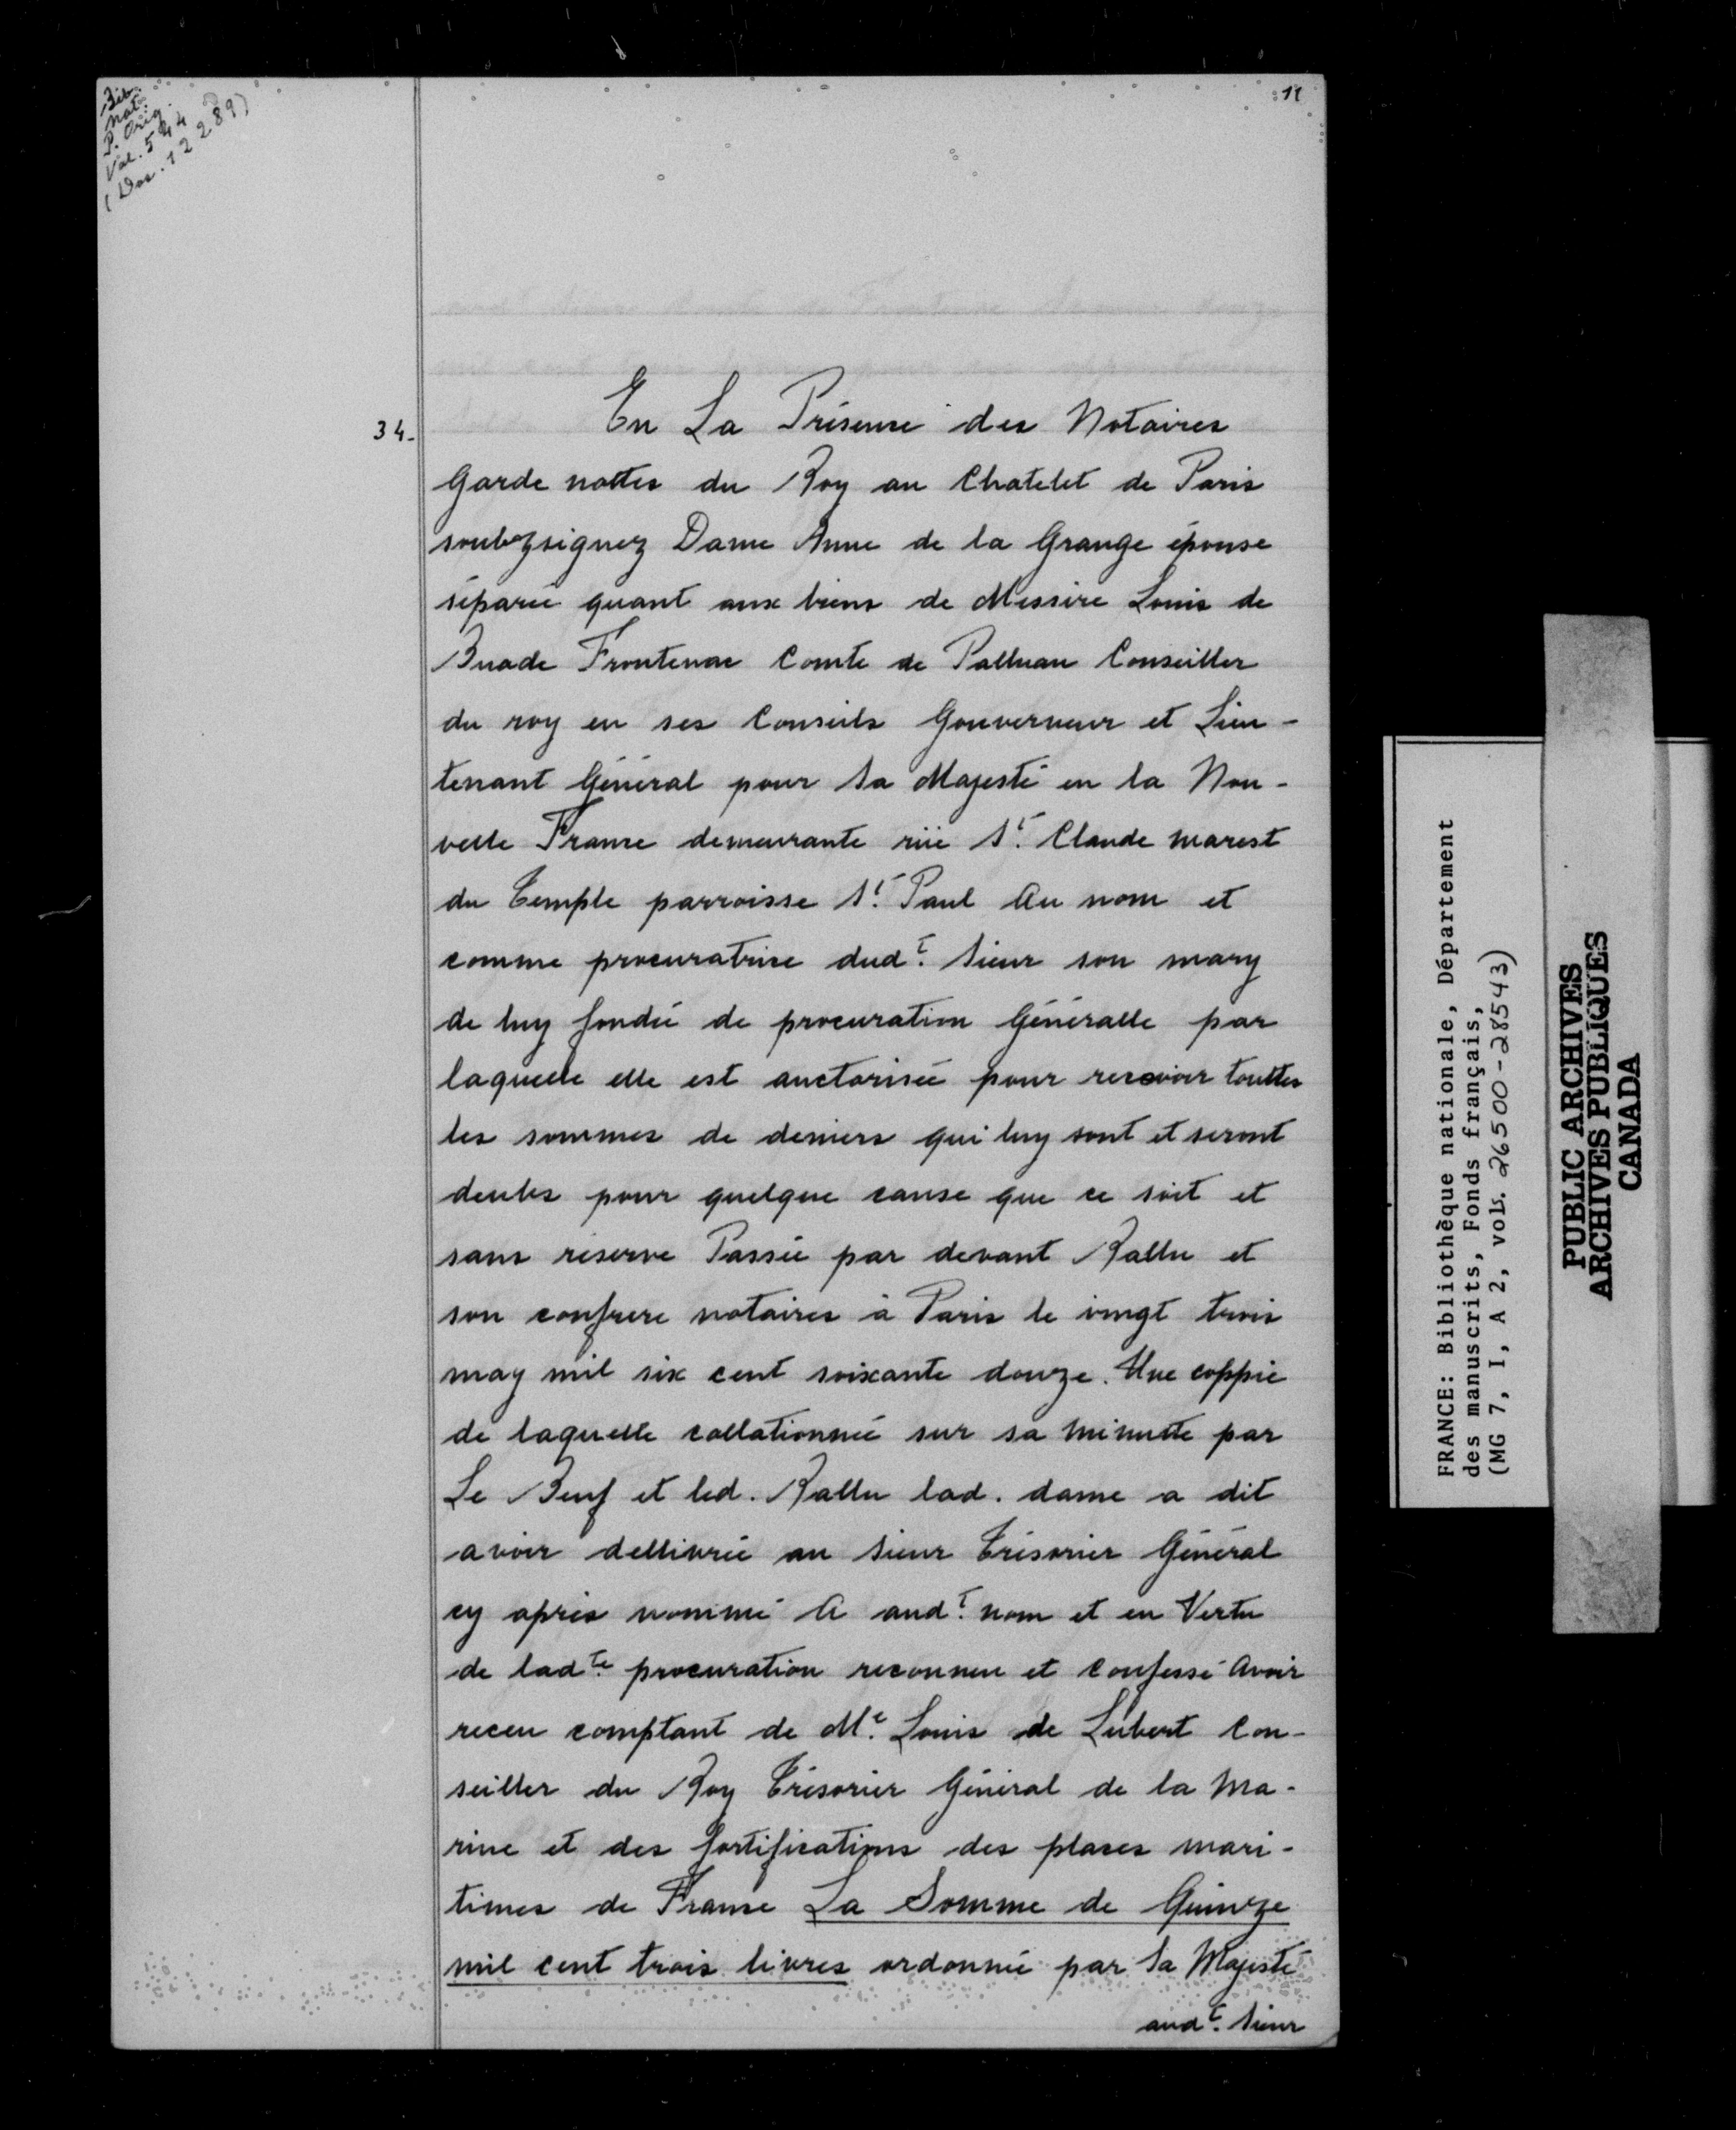 Bib.
nat.
P. Orig.
Vol. 544
(Dos. 12289)
11
34.
En La Présence des Notaires
Garde nottes du Roy au Chatelet de Paris
soubzsignez Dame Anne de la Grange épouse
séparée quant aux biens de Messire Louis de
Buade Frontenac Comte de Palluau Conseiller
du roy en ses Conseils Gouverneur et Lieu-
tenant Général pour Sa Majesté en la Nou-
velle France demeurante rüe St. Claude marest
du Temple parroisse St. Paul Au nom et
comme procuratrice dudt. Sieur son mary
de luy fondée de procuration Généralle par
laquelle elle est auctorisée pour recevoir touttes
les sommes de deniers qui luy sont et seront
deubs pour quelque cause que ce soit et
sans réserve Passée par devant Rallu et
son confrere notaires à Paris le vingt trois
may mil six cent soixante douze. Une coppie
de laquelle collationnée sur sa minutte par
Le Beuf et led. Rallu lad. dame a dit
avoir dellivrée au Sieur Trésorier Général
cy après nommé A audt. nom et en Vertu
de ladte. procuration reconneu et confessé Avoir
receu comptant de Me. Louis de Lubert Con-
seiller du Roy Trésorier Général de la Ma-
rine et des fortifications des places mari-
times de France La Somme de Quinze
mil cent trois livres ordonnée par Sa Majesté
audt. Sieur
FRANCE: Bibliothèque nationale, Département
des manuscrits, Fonds français,
(MG 7, I, A 2, vols. 26500-28543)
PUBLIC ARCHIVES
ARCHIVES PUBLIQUES
CANADA